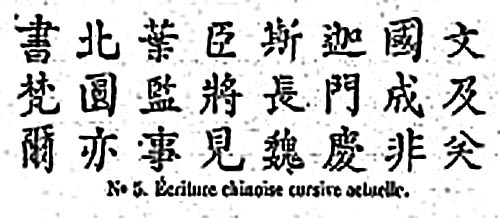 書北葉臣斯迦國文
梵圓監將長門成及
爾亦事見魏慶非矣
Nº 5. Écriture chinoise cursive actuelle.